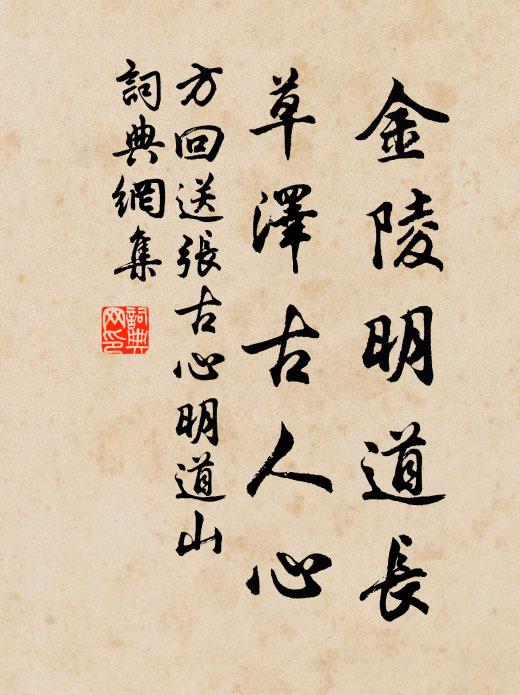 金陵明道長
草澤古人心
方回送張古心明道山
詞典網集
詞典网印